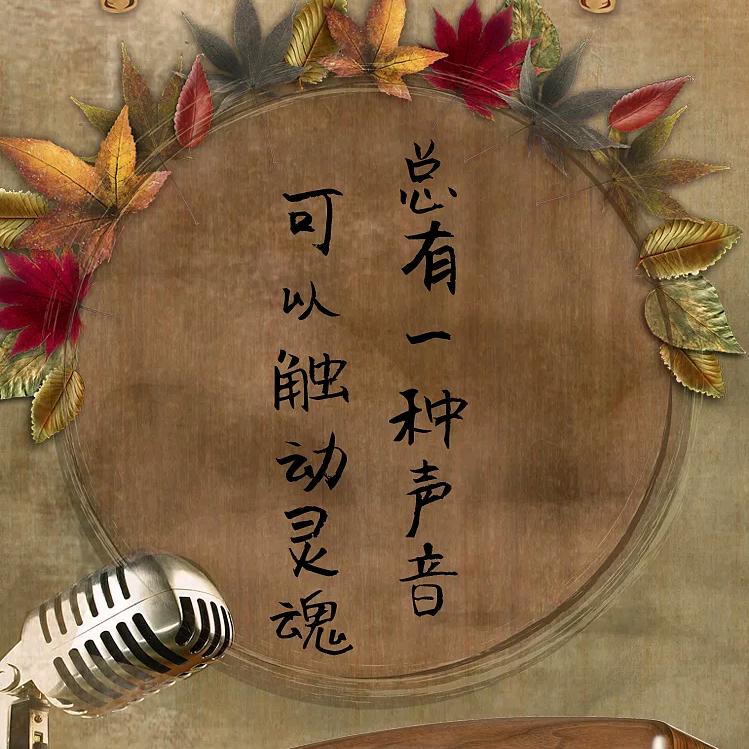 总有一种声音
可以触动灵魂